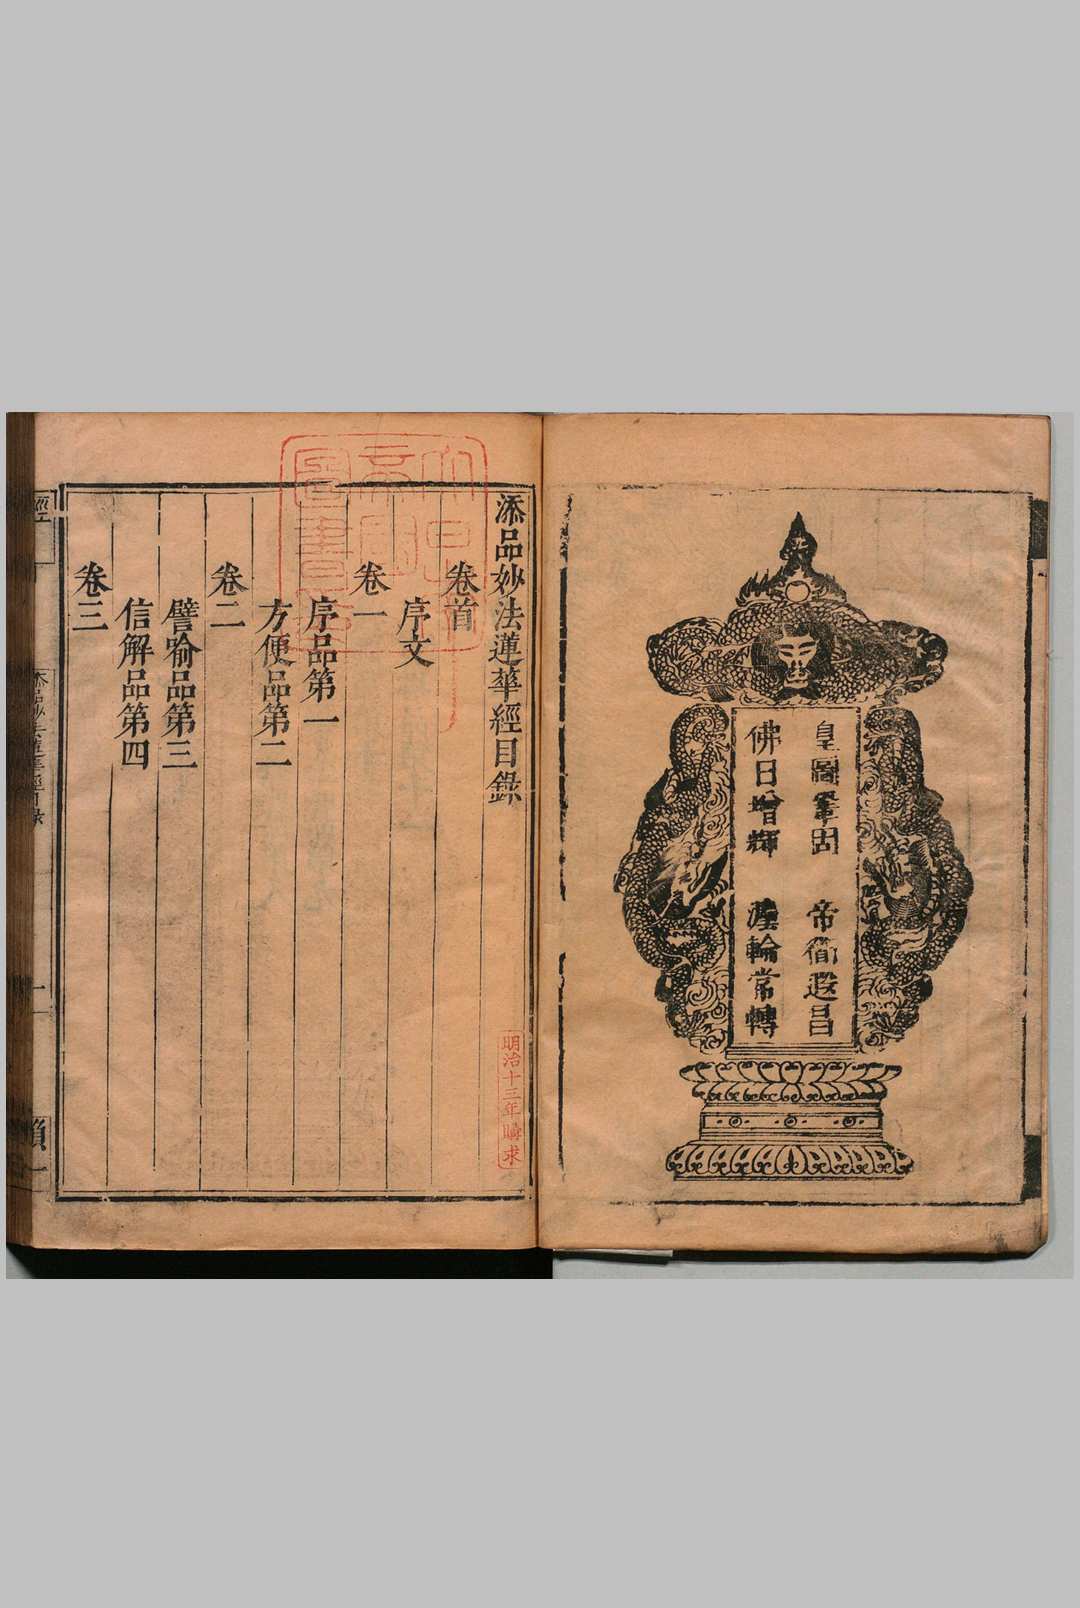 皇圖鞏固 帝道遐昌
佛日增輝 法輪常轉
添品妙法蓮華經目錄
卷首
序文
卷一
序品第一
方便品第二
卷二
譬喻品第三
信解品第四
卷三
明治十三年購求
添品妙法蓮華經目錄
經